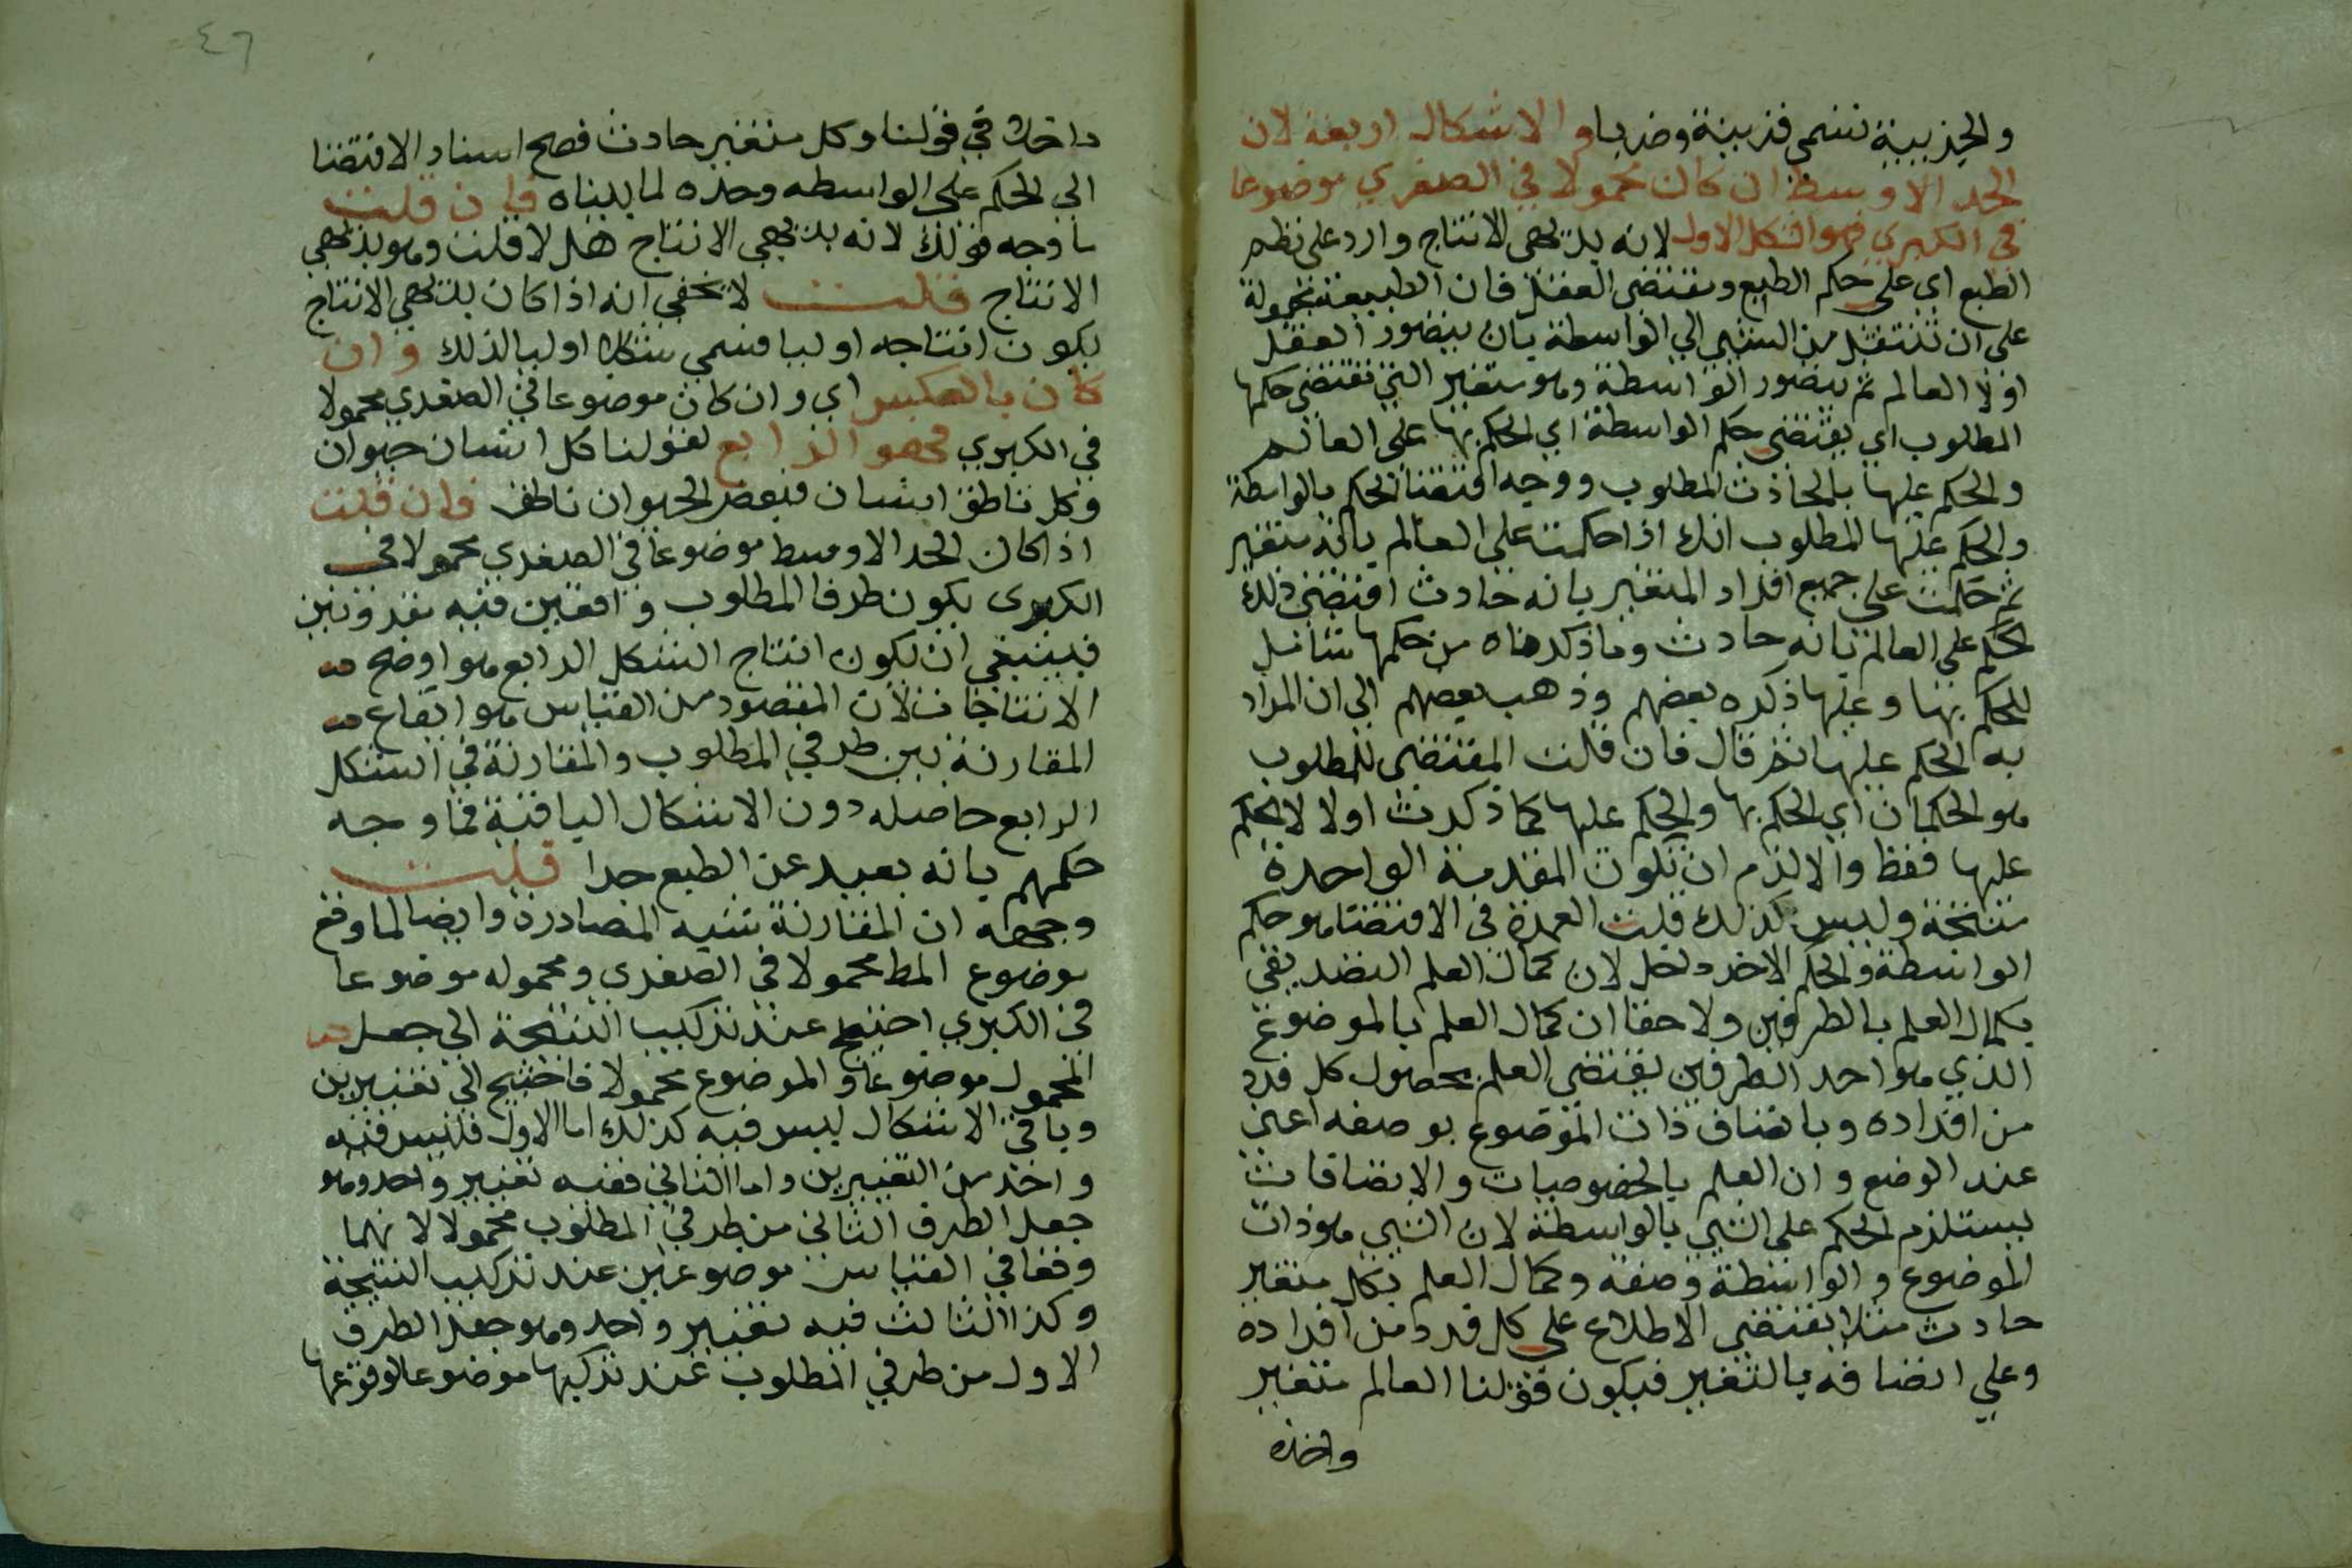 والجزيية تسمى قرينة وضربا والاشكال اربعة لان
الحد الاوسط ان كان محمولا في الصغري موضوعا
في الكبري فهو الشكل الاول لانه بديهي الانتاج وارد على نظم
الطبع اي على حكم الطبع ومقتضى العقل فان الطبيعة مجمولة
على ان تنتقل من الشي الي الواسطة بان يتصور العقل
اولا العالم ثم يتصور الواسطة وهو متغير التي تقتضي حكمها
المطلوب اي يقتضي حكم الواسطة اي الحكم بها على العالم
والحكم عليها بالحادث المطلوب ووجه اقتضا الحكم بالواسطة
والحكم عليها المطلوب انك اذا حكمت على العالم بانه متغير
ثم حكمت على جميع افراد المتغير بانه حادث اقتضى ذلك
الحكم على العالم بانه حادث وما ذكرناه من حكمها شامل
للحكم بها وعليها ذكره بعضهم وذهب بعضهم الي ان المراد
به الحكم عليها ثم قال فان قلت المقتضى للمطلوب
هو الحكمان اي الحكم بها والحكم عليها كما ذكرت اولا لا الحكم
عليها فقط والا لزم ان تكون المقدمة الواحدة
منتجة وليس كذلك قلت العمدة في الاقتضا هو حكم
الواسطة والحكم الاخر دخل لان كمال العلم التصديقي
بكمال العلم بالطرفين ولا خفا ان كمال العلم بالموضوع
الذي هو احد الطرفين يقتضي العلم بحصول كل فرد
من افراده وباتصاف ذات الموضوع بوصفه اعني
عند الوضع وان العلم بالخصوصيات والاتصافات
يستلزم الحكم على الشي بالواسطة لان الشي هو ذات
الموضوع والواسطة وصفه وكمال العلم بكل متغير
حادث مثلا يقتضي الاطلاع على كل فرد من افراده
وعلى اتصافه بالتغير فيكون قولنا العالم متغير
داخلا في قولنا وكل متغير حادث فصح اسناد الاقتضا
الي الحكم على الواسطه وحده لما بيناه فان قلت
ما وجه قولك لانه بديهي الانتاج هل لا قلت وهو بديهي
الانتاج قلت لا يخفي انه اذا كان بديهي الانتاج
يكون انتاجه اوليا فسمي شكلا اوليا لذلك وان
كان بالعكس اي وان كان موضوعا في الصغري محمولا
في الكبري فهو الرابع كقولنا كل انسان حيوان
وكل ناطق انسان فبعض الحيوان ناطق فان قلت
اذا كان الحد الاوسط موضوعا في الصغري محمولا في
الكبرى يكون طرفا المطلوب واقعين فيه مقرونين
فينبغي ان يكون انتاج الشكل الرابع هو اوضح
الانتاجات لان المقصود من القياس هو ايقاع
المقارنة بين طرفي المطلوب والمقارنة في الشكل
الرابع حاصله دون الاشكال الباقية فما وجه
حكمهم بانه بعيد عن الطبع جدا قلت
وجهه ان المقارنة شبه المصادرة وايضا لما وقع
موضوع المط محمولا في الصغري ومحموله موضوعا
في الكبري احتيج عند تركيب النتيجة الي جعل
المحمول موضوعا والموضوع محمولا فاحتيج الي تغييرين
وباقي الاشكال ليس فيه كذلك اما الاول فليس فيه
واحد من التغييرين واما الثاني ففيه تغيير واحد وهو
جعل الطرف الثاني من طرفي المطلوب محمولا لانهما
وقعا في القياس موضوعين عند تركيب النتيجة
وكذا الثالث فيه تغيير واحد وهو جعل الطرف
الاول من طرفي المطلوب عند تركيبها موضوعا لوقوعها